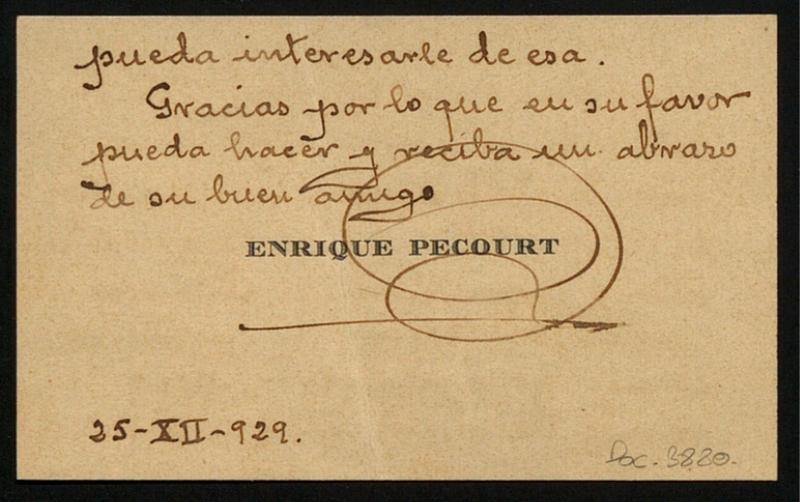 pueda interesarle de esa.
Gracias por lo que en su favor
pueda hacer y reciba un abrazo
de su buen amigo
ENRIQUE PECOURT
25-XII-929.
Doc. 3820.